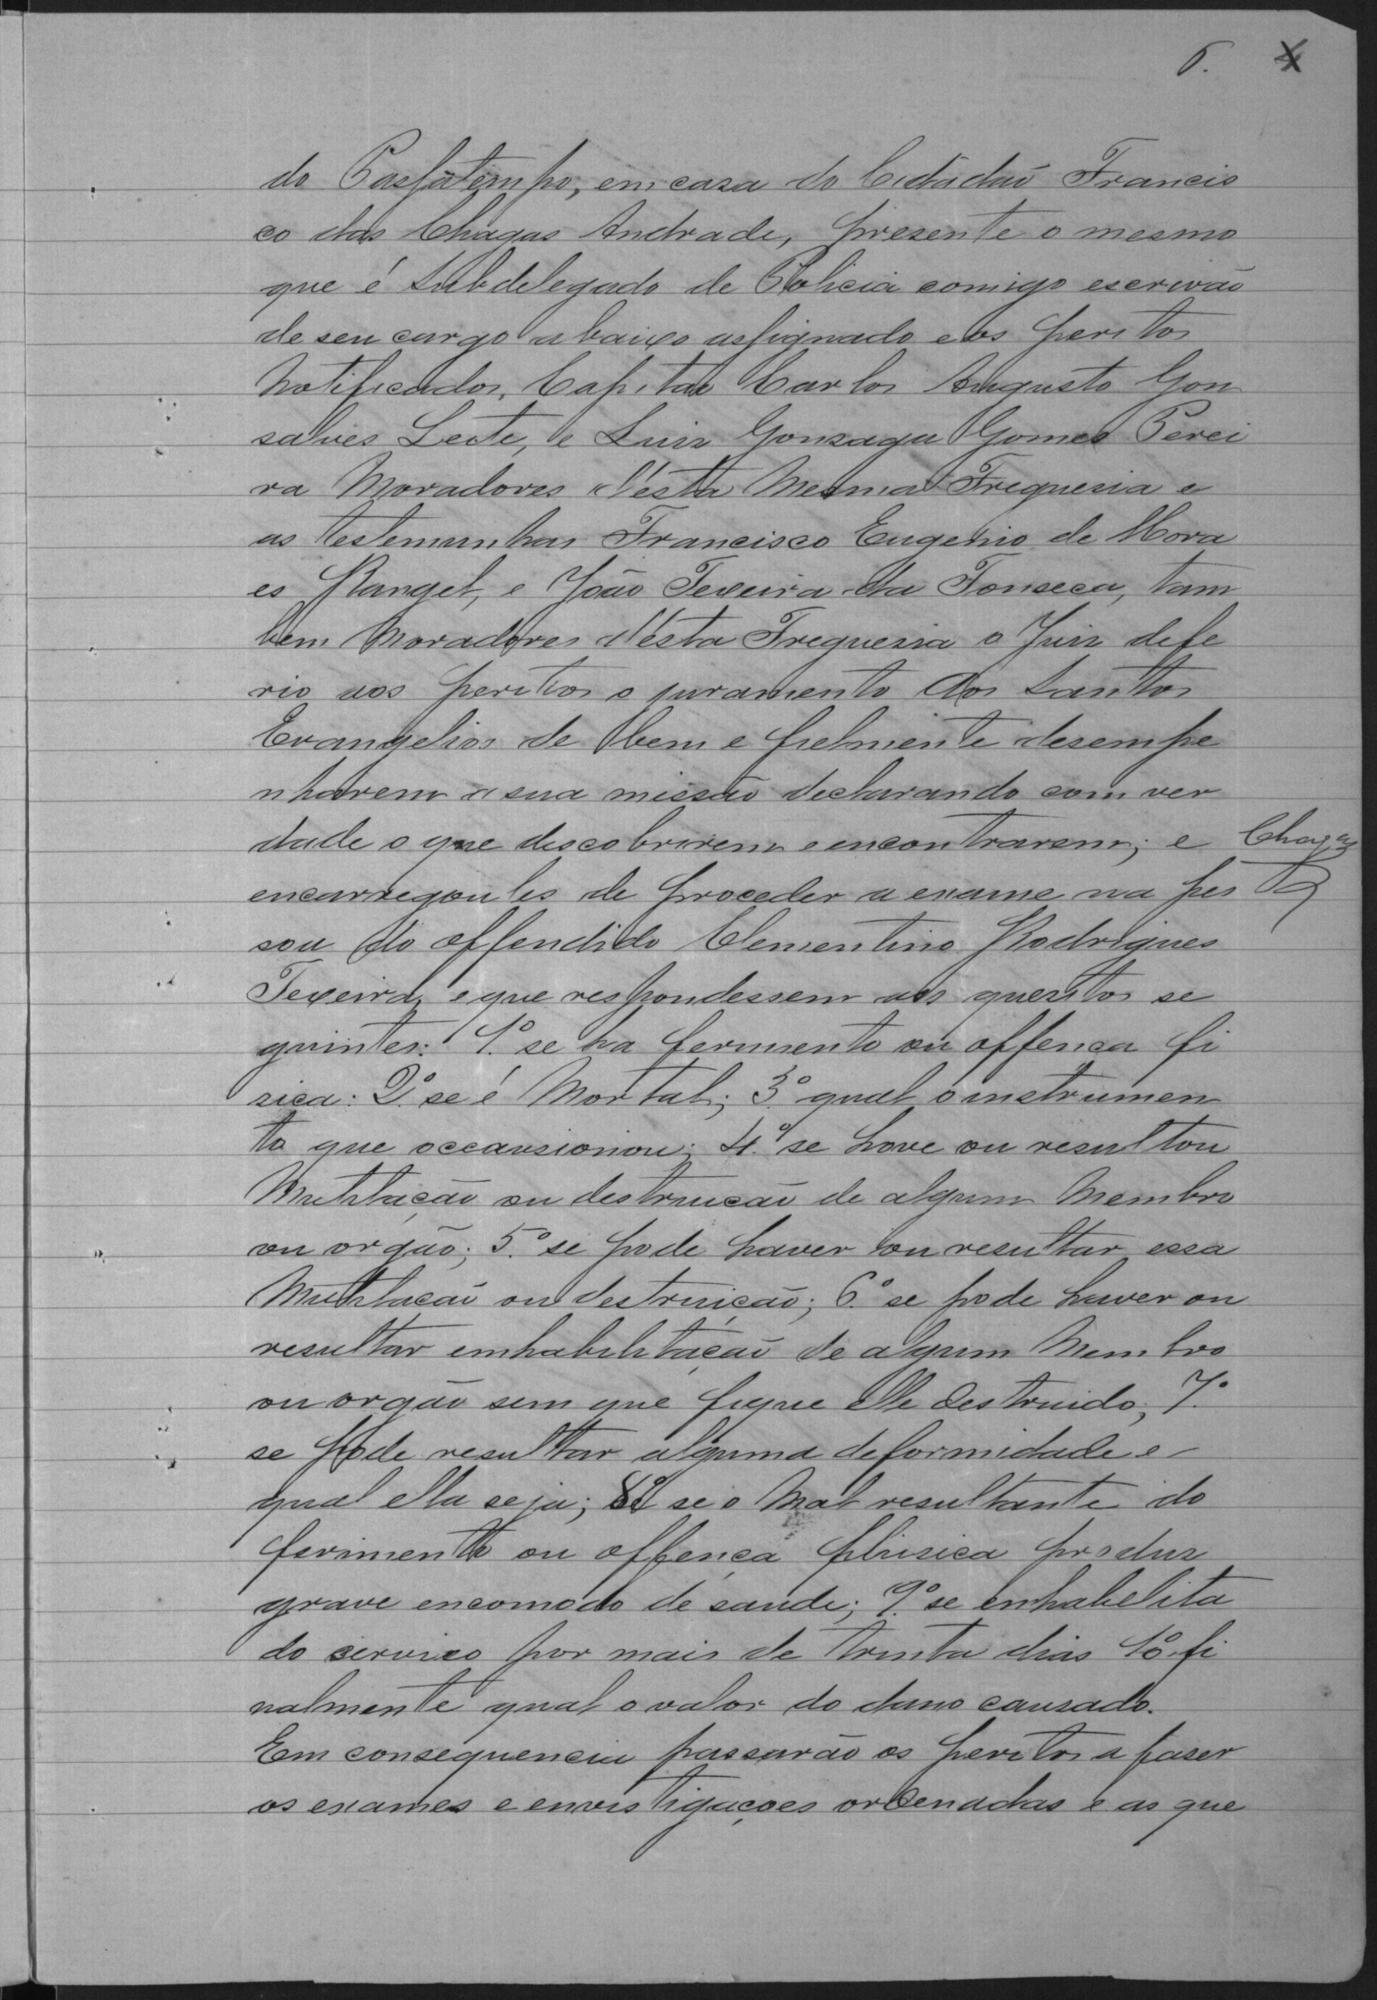 6. 4
do Passatempo, em casa do Cidadão Francis
co das Chagas Andrade, presente o mesmo
que é Subdelegado de Policia comigo escrivão
de seu cargo abaixo assignado e os peritos
Notificados, Capitão Carlos Augusto Gon
salves Leite, e Luiz Gonzaga Gomes Perei
ra Moradores n'esta Mesma Freguesia e
as testemunhas Francisco Eugenio de Mora
es Rangel, e João Texeira da Fonseca, tam
bem Moradores n'esta Freguesia o Juiz defe
rio aos peritos o juramento dos Santtos
Evangelios de bem e fielmente desempe
nharem a sua missão declarando com ver
dade o que descobrirem e encontrarem; e
Chagas
encarregou les de proceder a exame na pes
soa do offendido Clementino Rodrigues
Texeira, e que respondessem aos quesitos se
guintes: 1.º se ha ferimento ou offenca fi
sica: 2.º se é Mortal; 3.º qual o instrumen
to que occausionou; 4.º se hove ou resultou
Mutilação ou destruicão de algum Membro
ou orgão; 5.º se pode haver ou resultar essa
Mutilacaõ ou destruição; 6.º se pode haver ou
resultar emhabilitação de algum Membro
ou orgão sem que fique elle destruido; 7.º
se pode resultar alguma deformidade e
qual ella seja; 8º se o Mal resultante do
ferimento ou offença phisica produz
grave encomodo de saude; 9.º se enhabelita
do servico por mais de trinta dias 10º fi
nalmente qual o valor do dano causado.
Em consequencia passarão os peritos a faser
os exames e envistigações ordenadas e as que